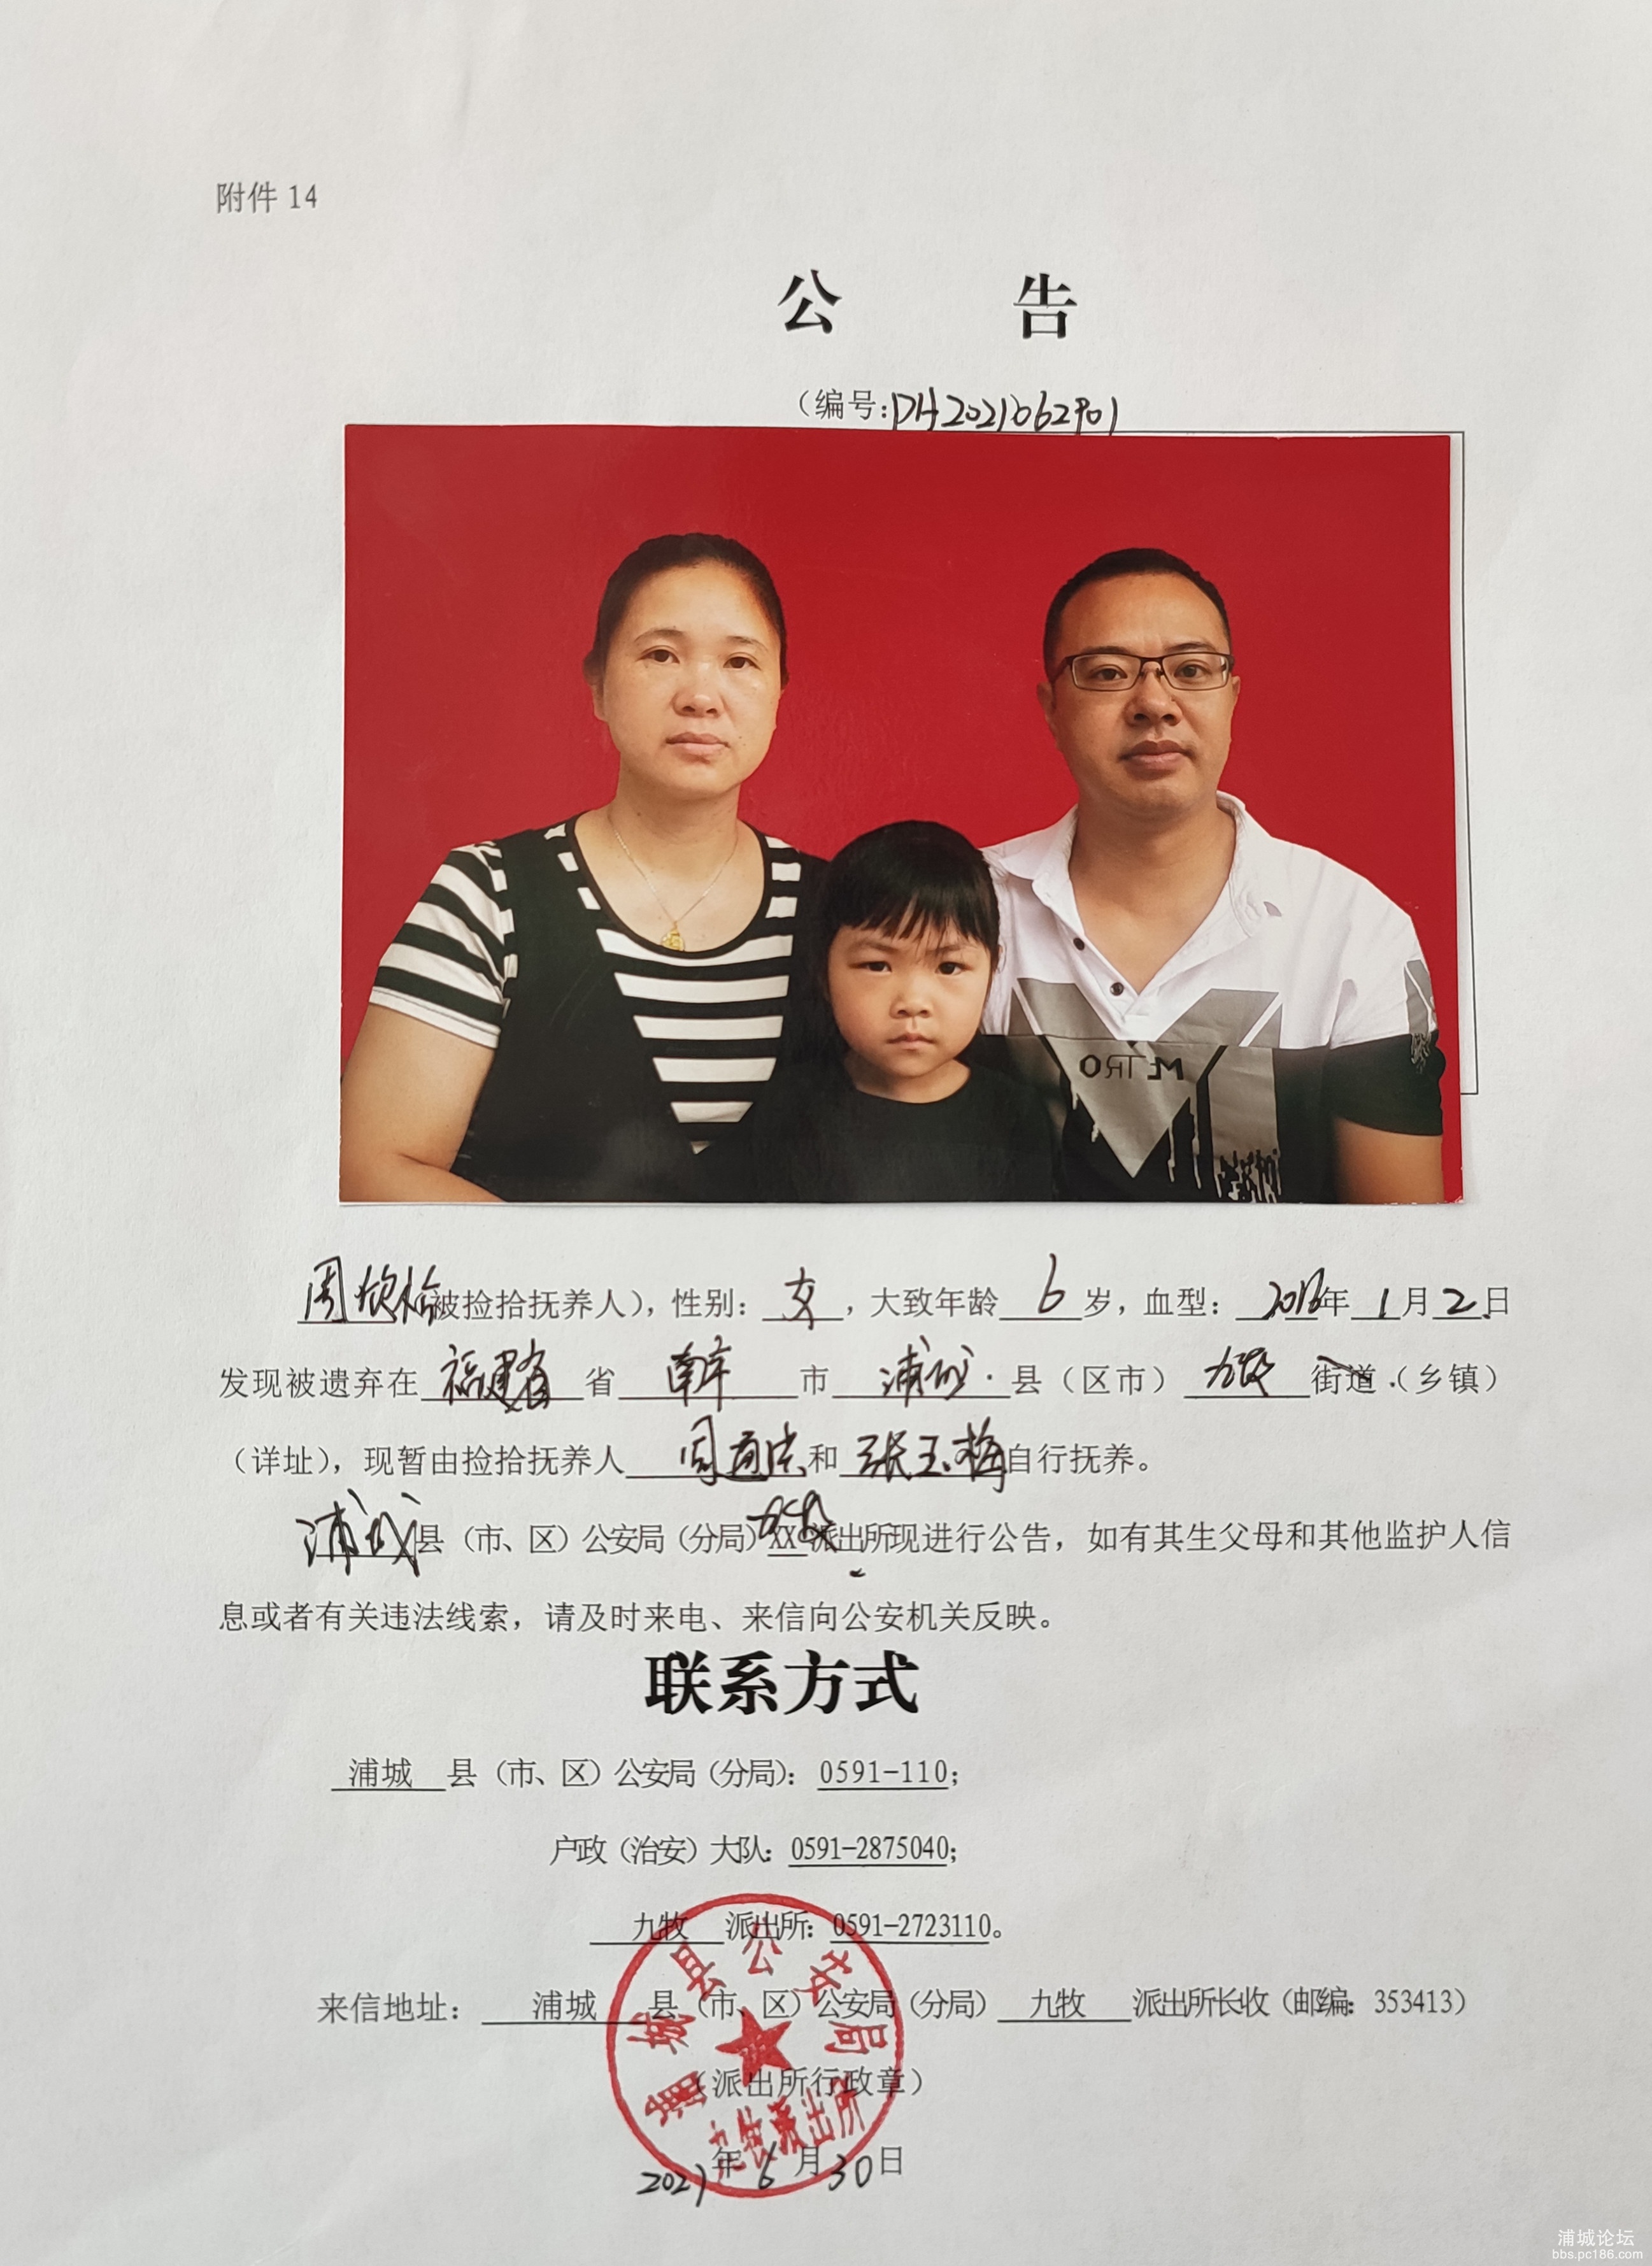 附件 14
公 告
（编号:PH2021062901
METRO
周欣怡被捡拾抚养人），性别：女，大致年龄 6 岁，血型： 年 1 月 2 日
发现被遗弃在 福建省 省 南平 市 浦城 县（区市） 九牧 街道（乡镇）
（详址），现暂由捡拾抚养人 周 和 张玉梅 自行抚养。
浦城县（市、区）公安局（分局）XX 九牧 派出所现进行公告，如有其生父母和其他监护人信
息或者有关违法线索，请及时来电、来信向公安机关反映。
联系方式
浦城 县（市、区）公安局（分局）：0591-110；
户政（治安）大队：0591-2875040；
九牧 派出所：0591-2723110。
来信地址： 浦城 县（市、区）公安局（分局） 九牧 派出所长收（邮编：353413）
（派出所行政章）
浦城县公安局
九牧派出所
2021年 6 月 30 日
浦城论坛
bbs.pc186.com